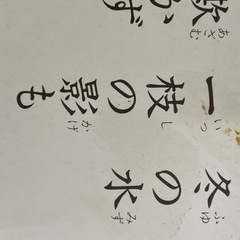 冬の水
ふゆ みず
一枝の影も
いっ し かげ
欺かず
あざむ